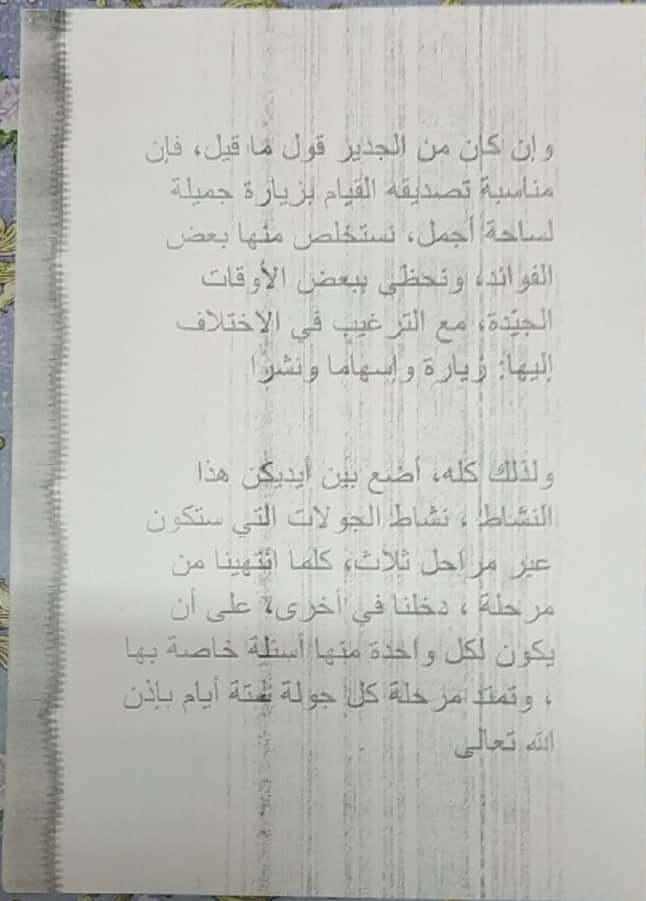 وإن كان من الجدير قول ما قيل، فإن
مناسبة تصديقه القيام بزيارة جميلة
لساحة أجمل، نستخلص منها بعض
الفوائد، ونحظى ببعض الأوقات
الجيّدة، مع الترغيب في الاختلاف
إليها؛ زيارة وإسهاما ونشرا
ولذلك كله، أضع بين أيديكن هذا
النشاط ، نشاط الجولات التي ستكون
عبر مراحل ثلاث، كلما انتهينا من
مرحلة ، دخلنا في أخرى، على أن
يكون لكل واحدة منها أسئلة خاصة بها
، وتمتد مرحلة كل جولة ستة أيام بإذن
الله تعالى